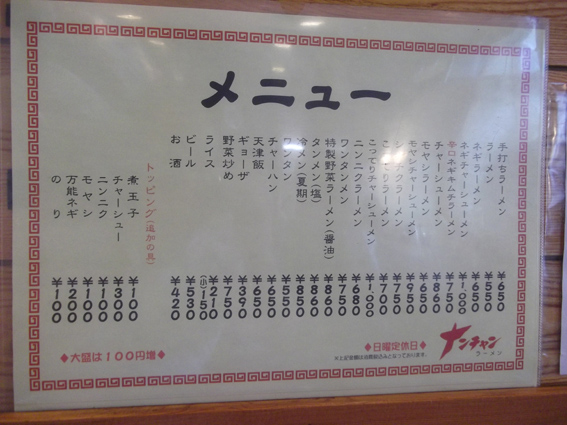 メニュー
手打ちラーメン ¥650
ラーメン ¥550
ネギラーメン ¥650
ネギチャーシューメン ¥1,000
辛口ネギキムチラーメン ¥750
チャーシューメン ¥860
モヤシラーメン ¥650
モヤシチャーシューメン ¥950
クラーメン ¥750
こってりラーメン ¥700
こってりチャーシューメン ¥1,000
ニンニクラーメン ¥680
ワンタンメン ¥750
特製野菜ラーメン(醤油) ¥860
タンメン(塩) ¥860
冷メン(夏期) ¥850
ワンタン ¥550
チャーハン ¥650
天津飯 ¥650
ギョーザ ¥390
野菜炒め ¥750
ライス ¥210
(小)150
ビール ¥530
お酒 ¥420
トッピング(追加の具)
煮玉子 ¥100
チャーシュー ¥300
ニンニク ¥100
モヤシ ¥100
万能ネギ ¥200
のり ¥100
◆大盛は100円増◆
◆日曜定休日◆
※上記金額は消費税込みとなっております。
ナンチャン
ラーメン